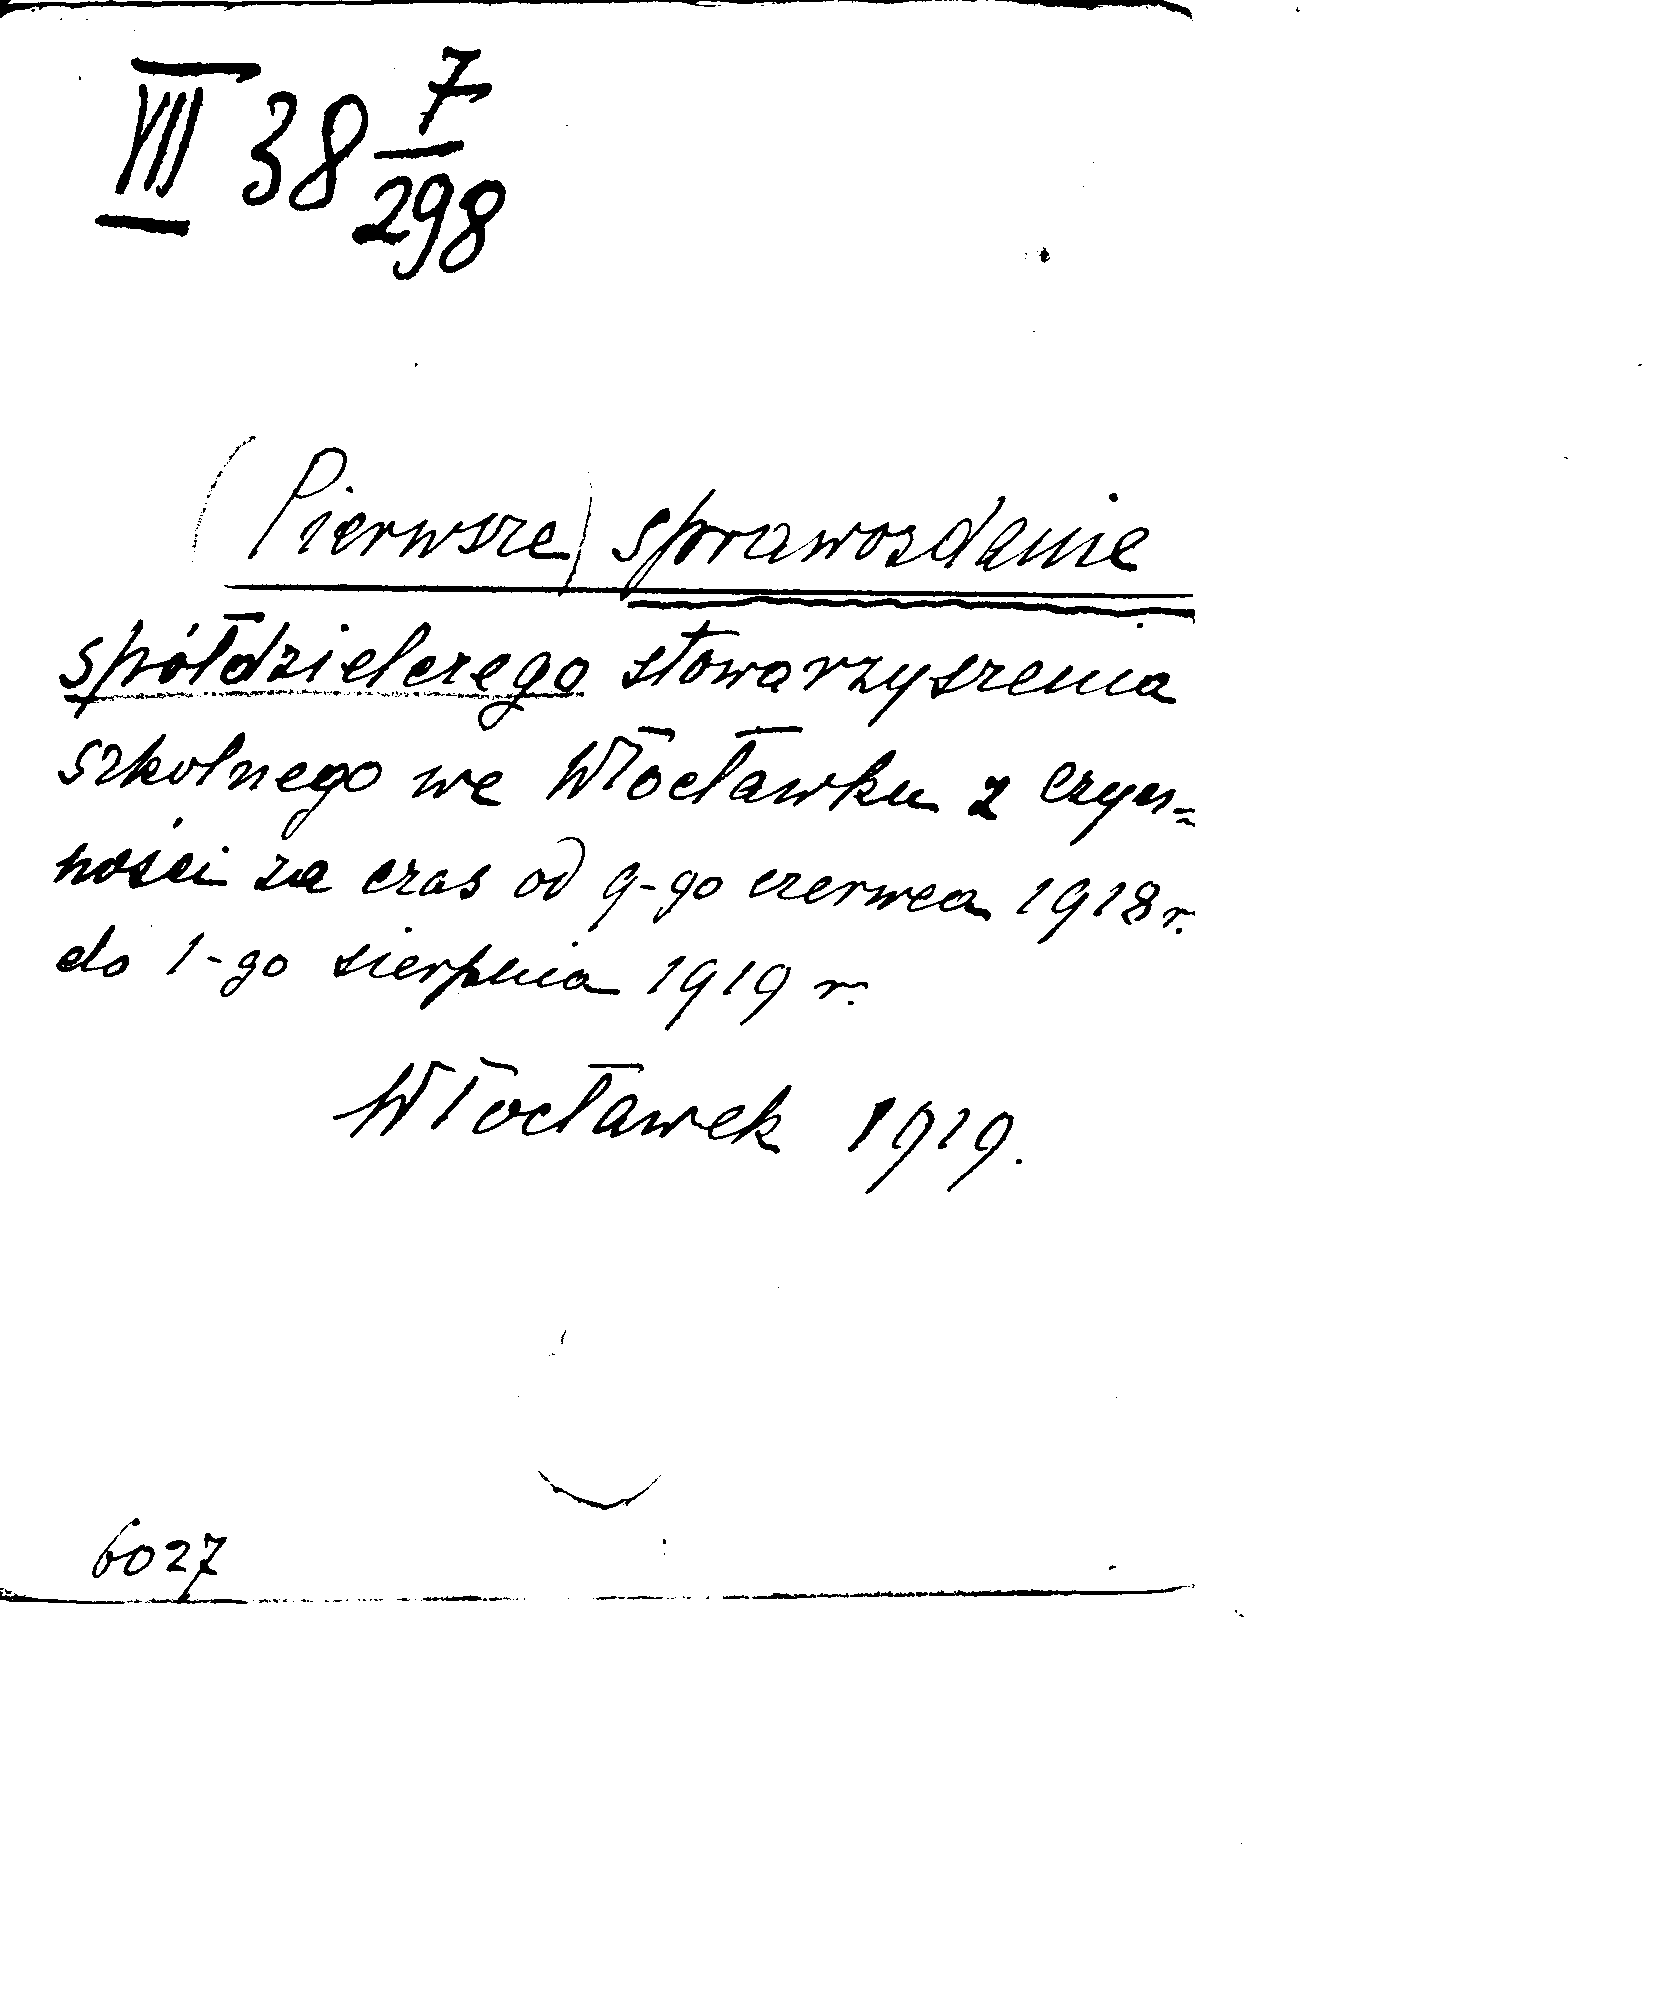 VIII 38 7/298
(Pierwsze) sprawozdanie
spółdzielczego stowarzyszenia
szkolnego we Włocławku z czyn=
ności za czas od 9-go czerwca 1918 r.
do 1-go sierpnia 1919 r.
Włocławek 1919.
6027